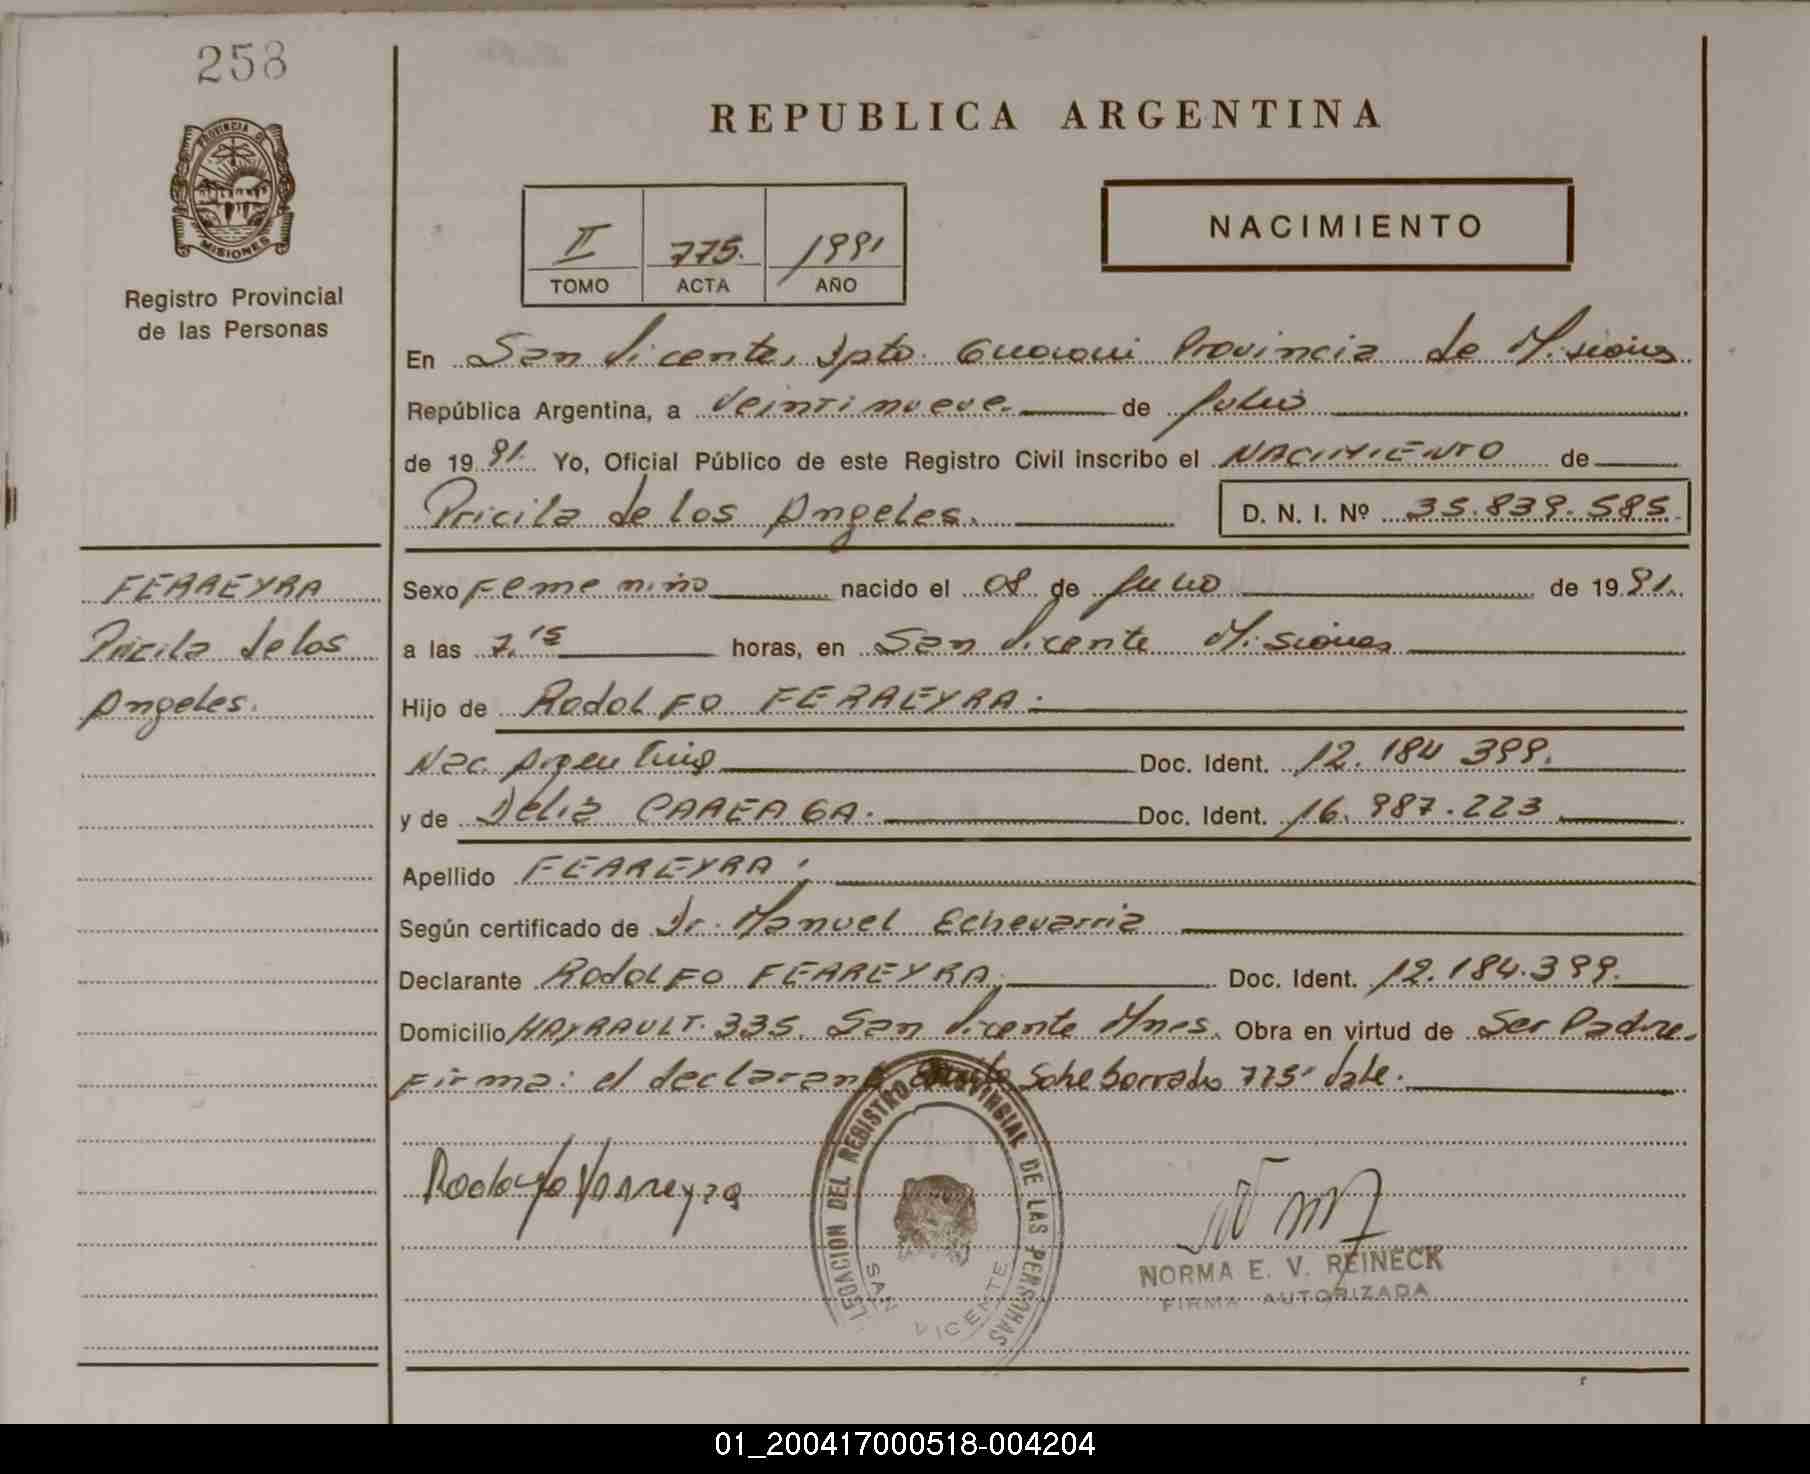 258
PROVINCIA D
MISIONES
Registro Provincial
de las Personas
REPUBLICA ARGENTINA
II 775. 1991
TOMO ACTA AÑO
NACIMIENTO
En San Vicente, Dpto. Guaraní Provincia de Misiones
República Argentina, a Veintinueve. de Julio
de 19 91. Yo, Oficial Público de este Registro Civil inscribo el NACIMIENTO de
Pricila de los Angeles.
D. N. I. Nº 35.839.585
FERREYRA
Pricila de los
Angeles.
Sexo Femenino nacido el 08 de Julio de 19 91.
a las 7.15 horas, en San Vicente Misiones
Hijo de Rodolfo FERREYRA.
Nac. Argentina Doc. Ident. 12.184 399.
y de Delia CAREAGA. Doc. Ident. 16.987.223
Apellido FERREYRA.
Según certificado de Dr. Manuel Echevarria
Declarante Rodolfo FERREYRA. Doc. Ident. 12.184.399.
Domicilio HAYRAULT. 335. San Vicente Mnes. Obra en virtud de Ser Padre.
Firma: el declarante Sobre borrado 775. Vale.
Rodolfo Ferreyra
DELEGACION DEL REGISTRO PROVINCIAL DE LAS PERSONAS
SAN VICENTE
NORMA E. V. REINECK
FIRMA AUTORIZADA
01_200417000518-004204